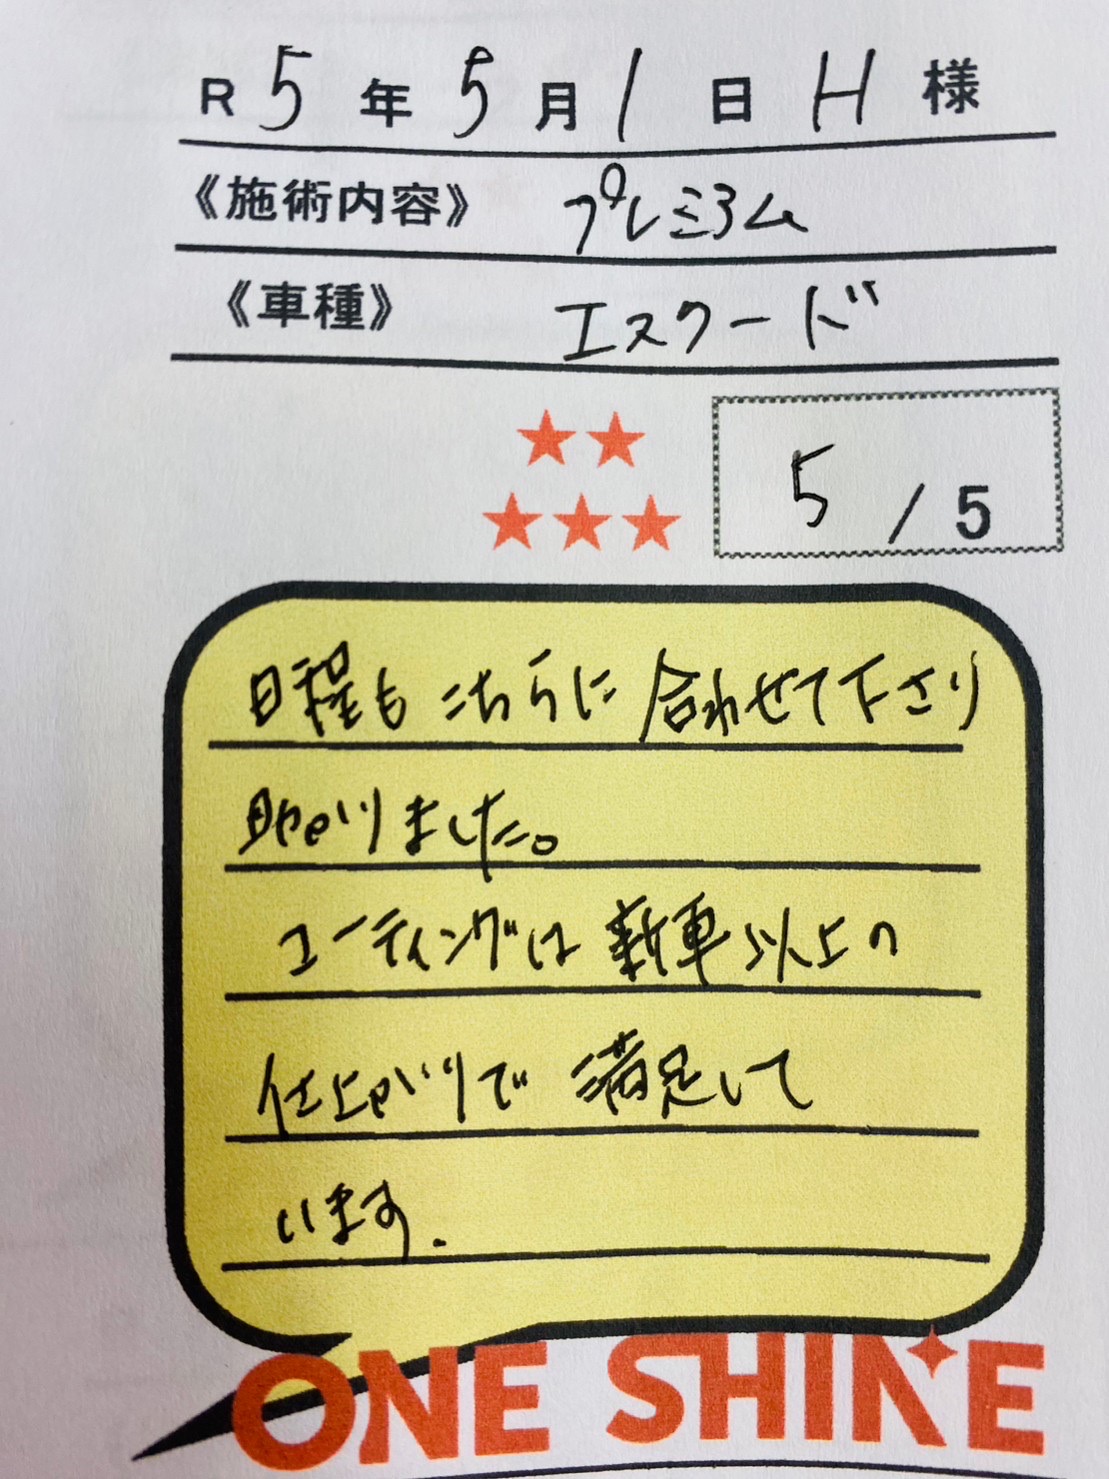 R 5 年 5 月 1 日 H 様
《施術内容》 プレミアム
《車種》 エスクード
5 / 5
日程もこちらに合わせて下さり
助かりました。
コーティングは新車以上の
仕上がりで満足して
います.
ONE SHINE